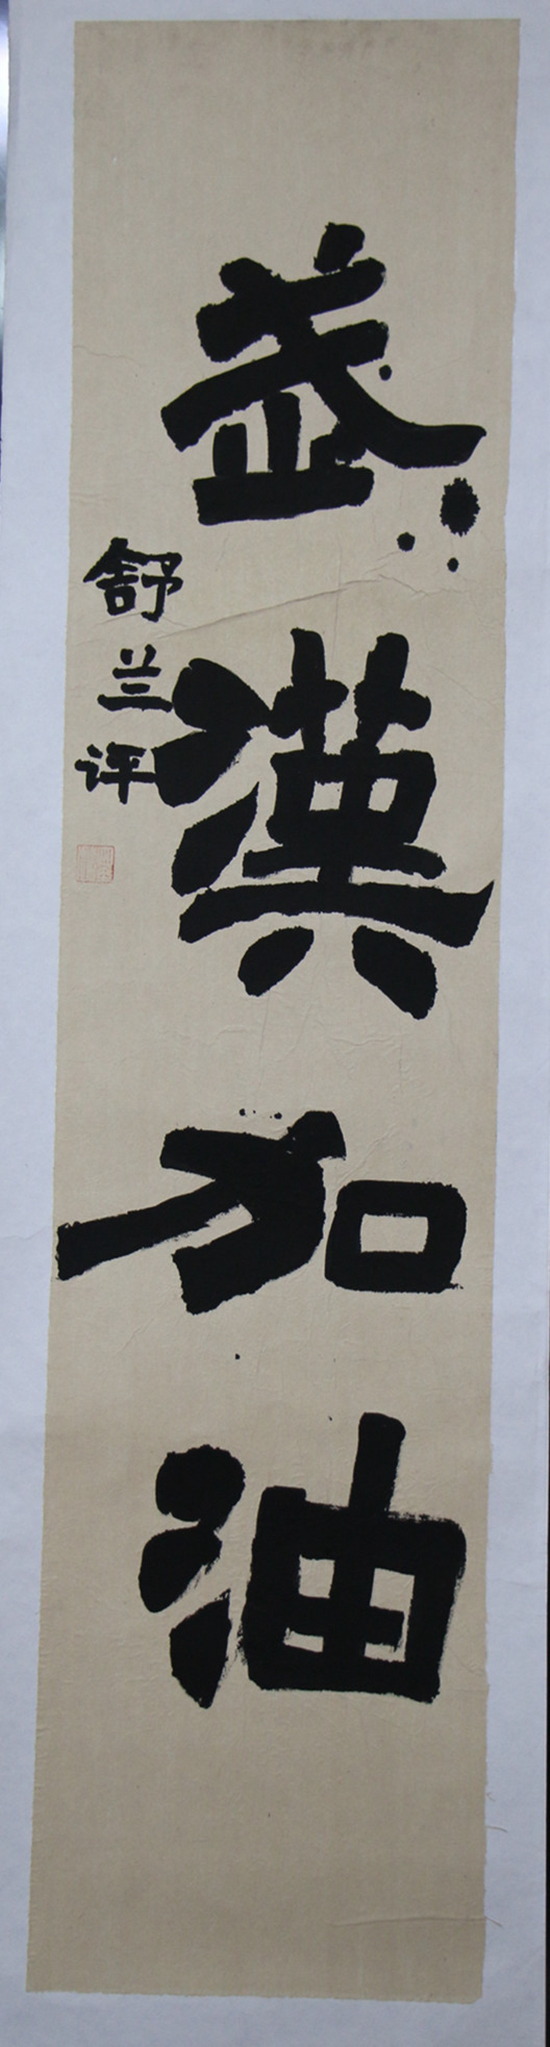 武漢加油
舒兰评